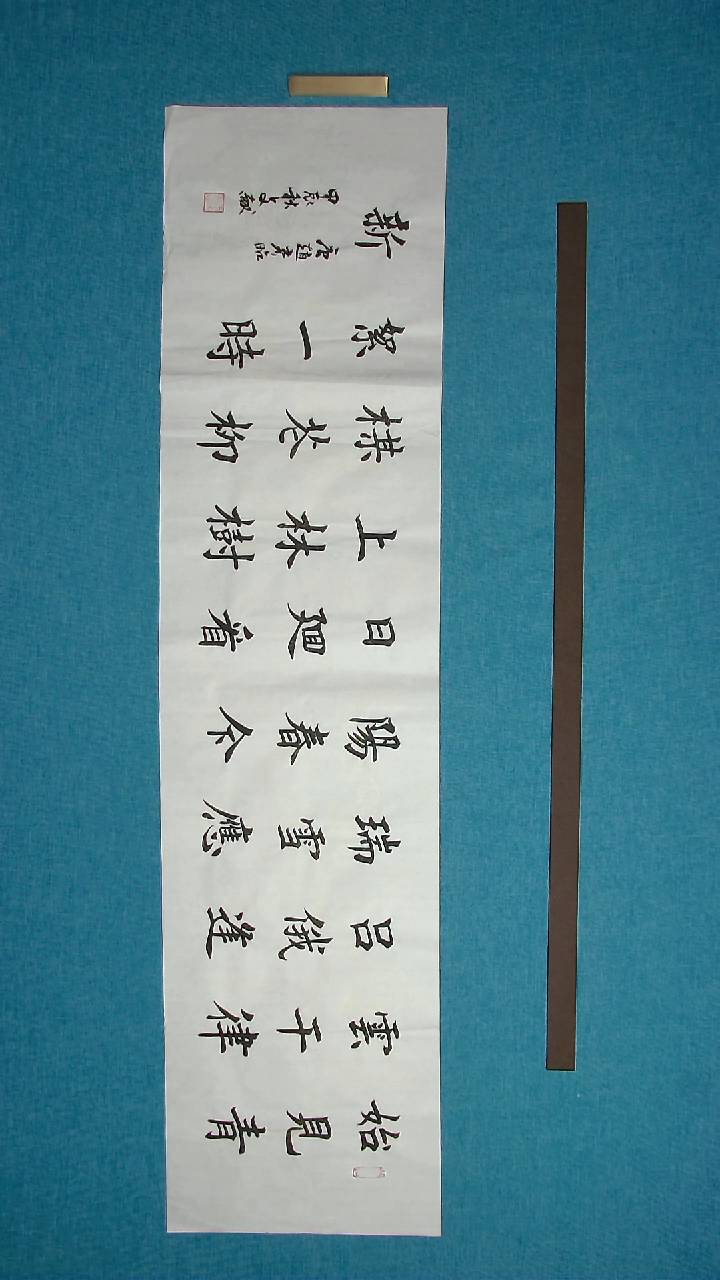 始見青
雲干律
呂俄逢
瑞雪應
陽春今
日廻看
上林樹
楳花柳
絮一時
新
唐趙彦昭
甲辰秋